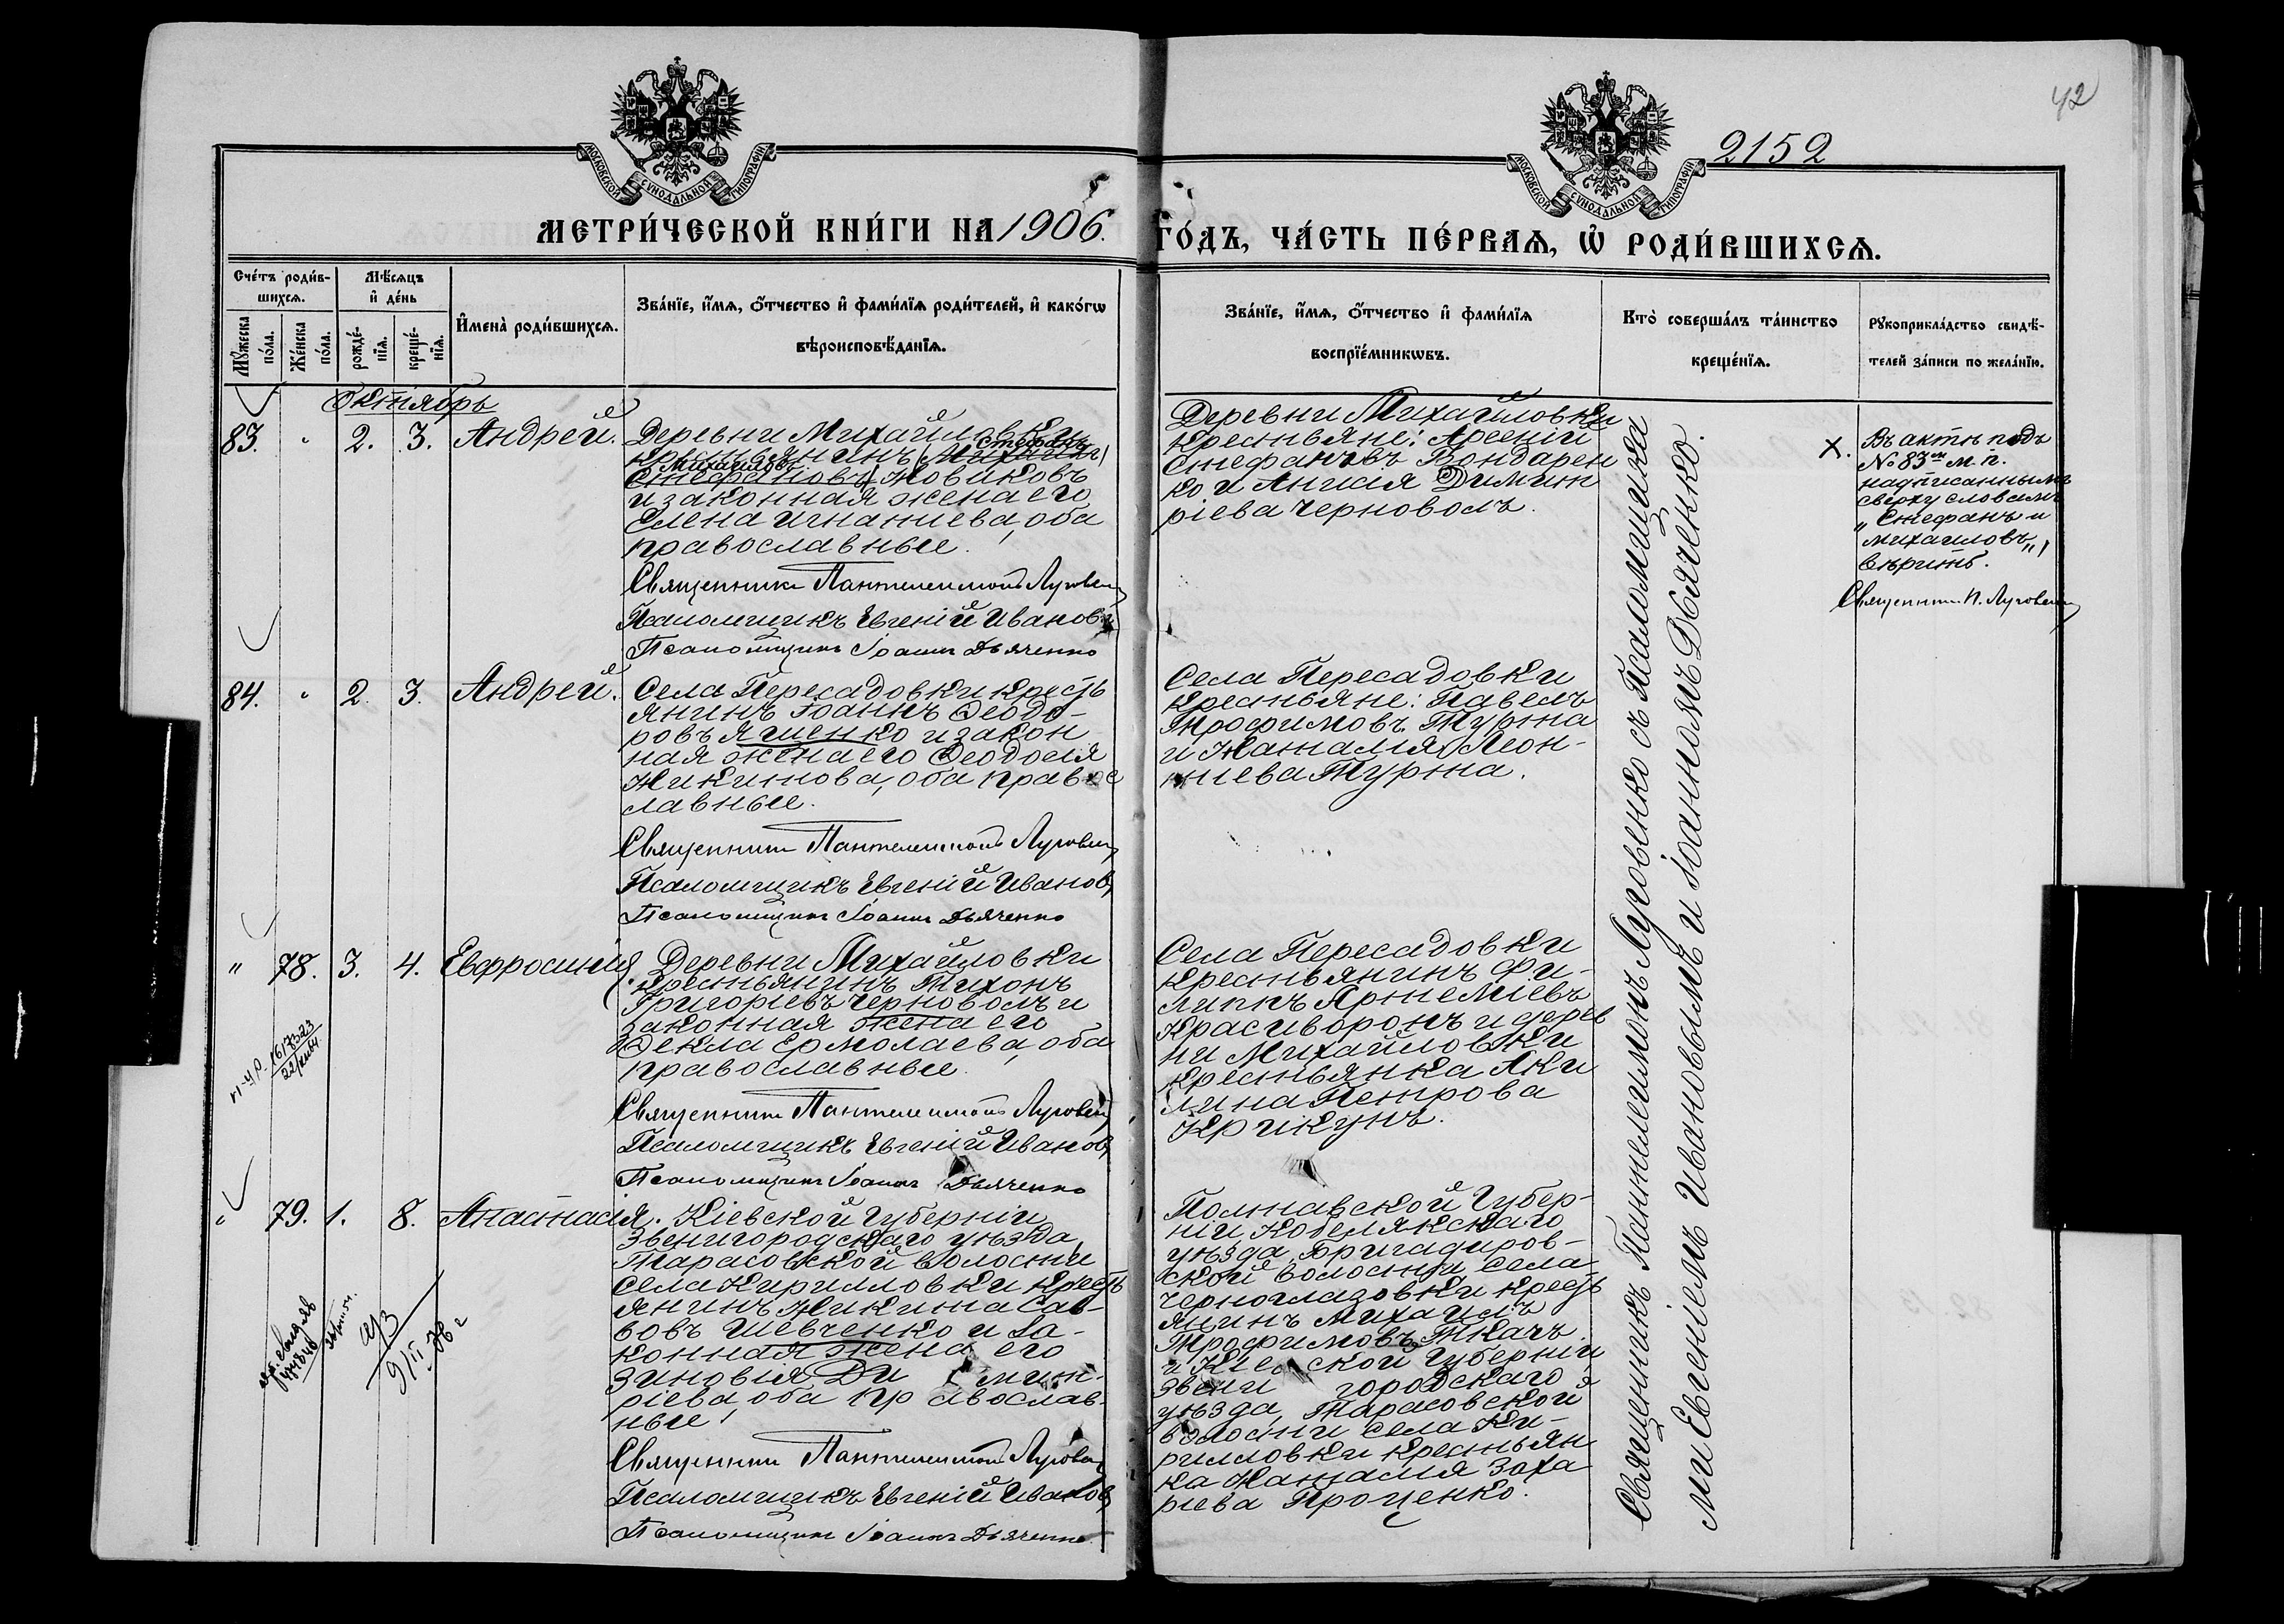 42
2152
МОСКОВСКОЙ СѴНОДАЛЬНОЙ ТИПОГРАФІИ
МОСКОВСКОЙ СѴНОДАЛЬНОЙ ТИПОГРАФІИ
МЕТРИ́ЧЕСКОЙ КНИ́ГИ НА 1906.
ГО́ДЪ, ЧА́СТЬ ПЕ́РВАѦ, Ѡ҆ РОДИ́ВШИХСѦ.
Сче́тъ роди́в-
шихсѧ.
Мѣ́сѧцъ
и҆ де́нь
Мꙋ́жеска
по́ла.
Же́нска
по́ла.
рожде́-
нїѧ.
креще́-
нїѧ.
И҆мена̀ роди́вшихсѧ.
Зва́нїе, и҆́мѧ, о҆́тчество и҆ фами́лїѧ роди́телей, и҆ како́гѡ
вѣроисповѣ́данїѧ.
Зва́нїе, и҆́мѧ, о҆́тчество и҆ фами́лїѧ
воспрїе́мникѡвъ.
Кто̀ соверша́лъ та́инство
креще́нїѧ.
Рꙋкоприкла́дство свидѣ́-
телей за́писи по жела́нїю.
Октябрь
83.
"
2.
3.
Андрей.
Деревни Михайловки
крестьянинъ (Михаилъ) Стефанъ
Стефановъ) Михаиловъ Новиковъ
и законная жена его
Елена Игнатиева, оба
православные.
Священникъ Пантелеимонъ Луговенко
Псаломщикъ Евгеній Ивановъ
Псаломщикъ Іоаннъ Дьяченко
Деревни Михайловки
крестьяне: Арсеній
Стефановъ Бондарен
ко и Анисія Димит
ріева Черноволъ.
X.
Въ актѣ подъ
№ 83м м. п.
надписаннымъ
сверху словамъ
„Стефанъ и
михаиловъ„
вѣрить.
Священник П. Луговенко
84.
"
2.
3.
Андрей.
Села Пересадовки кресть
янинъ Іоаннъ Ѳеодо-
ровъ Яценко и закон
ная жена его Ѳеодосія
Никитова, оба правос
лавные.
Священникъ Пантелеимонъ Луговенко
Псаломщикъ Евгеній Ивановъ
Псаломщикъ Іоаннъ Дьяченко
Села Пересадовки
крестьяне: Павелъ
Трофимовъ Турта
и Наталія Леон-
тиева Турта.
"
78.
3.
4.
Евфросинія
Деревни Михайловки
крестьянинъ Тихонъ
Григоріевъ Черноволъ и
законная жена его
Ѳекла Ермолаева, оба
православные.
Священникъ Пантелеимонъ Луговенко
Псаломщикъ Евгеній Ивановъ
Псаломщикъ Іоаннъ Дьяченко
Села Пересадовки
крестьянинъ Фи-
липпъ Артеміевъ
Красиворонъ и дерев
ни Михайловки
крестьянка Аки
лина Петрова
Крикунъ.
"
79.
1.
8.
Анастасія.
Кіевской Губерніи
Звенигородскаго уѣзда,
Тарасовской волости
Села Кирилловки кресть
янинъ Никита Сав-
вовъ Шевченко и за-
конная жена его
Зиновія Ди мит-
ріева, оба пр авослав-
ные.
Священникъ Пантелеимонъ Луговенко
Псаломщикъ Евгеній Ивановъ
Псаломщикъ Іоаннъ Дьяченко
Полтавской Губер-
ніи, Кобелякскаго
уѣзда, Бригадиров-
ской волости Села
Черноглазовки кресть
янинъ Михаилъ
Трофимовъ Ткачъ
и Кіевской Губерніи
Звени городскаго
уѣзда, Тарасовской
волости села Ки-
рилловки крестьян
ка Наталія Заха
ріева Проценко.
Священникъ Пантелеимонъ Луговенко съ Псаломщика
ми Евгеніемъ Ивановымъ и Іоанномъ Дьяченко.